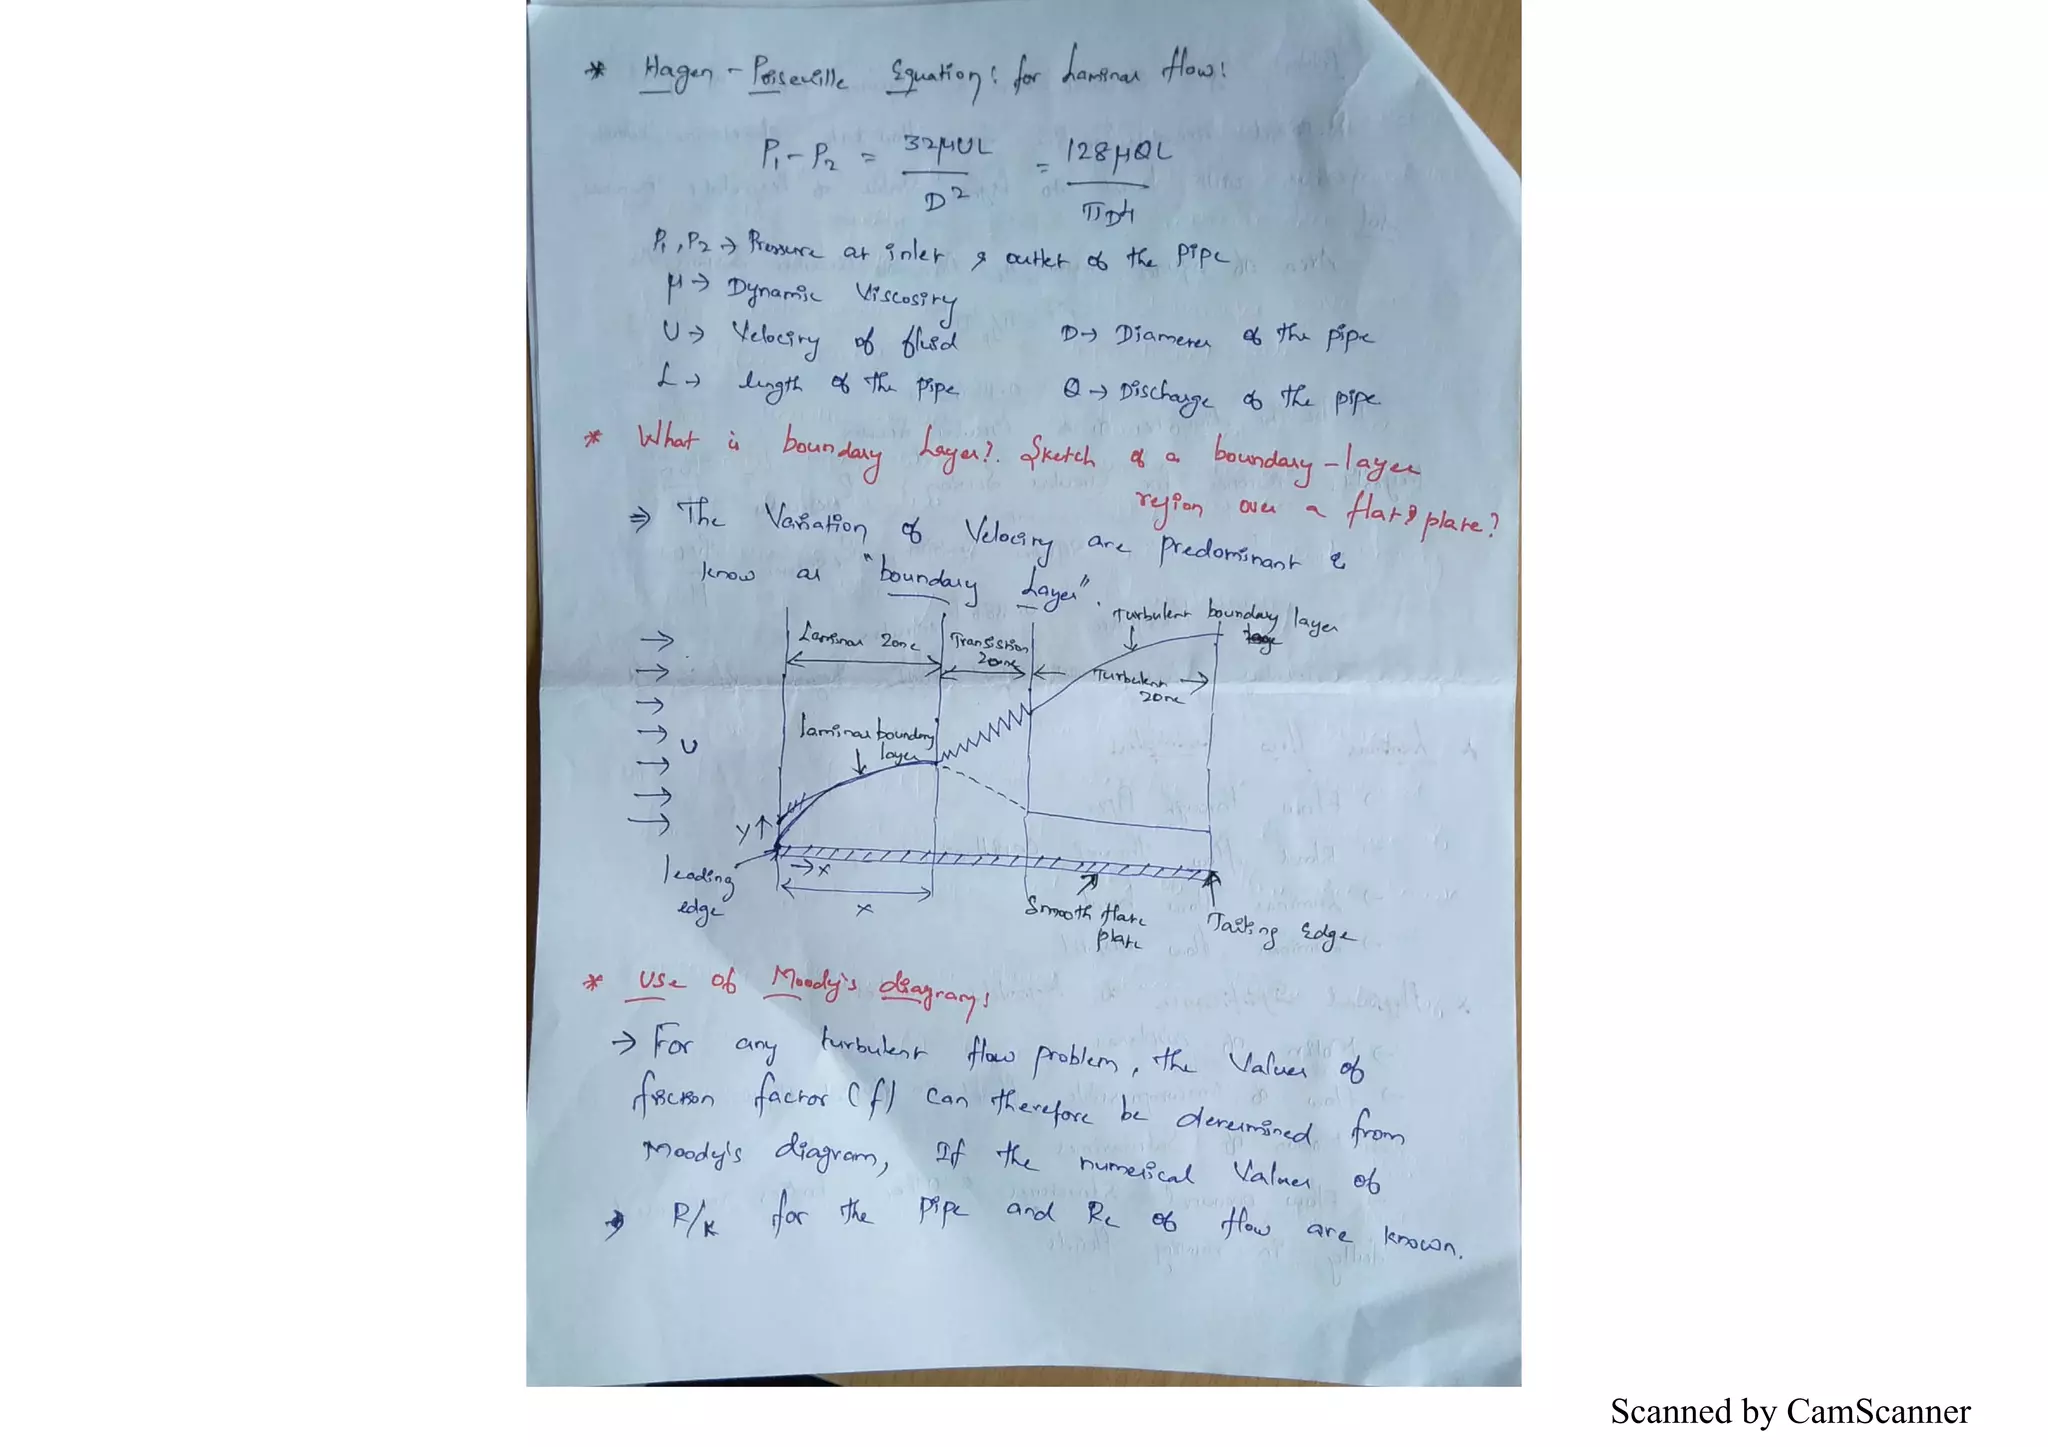 * Hagen - Poiseuille Equation: for Laminar flow:
P1 - P2 = 32μUL / D² = 128μQL / πD⁴
P1, P2 → Pressure at inlet & outlet of the pipe
μ → Dynamic Viscosity
U → Velocity of fluid D → Diameter of the pipe
L → length of the pipe Q → Discharge of the pipe
* What is boundary Layer?. Sketch of a boundary - layer
region over a flat plate?
⇒ The Variation of Velocity are predominant &
know as "boundary Layer".
Turbulent boundary layer
Laminar Zone
Transistion
Zone
Turbulent
zone
laminar boundary
layer
U
y
→x
x
leading
edge
Smooth flate
plate
Tailing Edge
* Use of Moody's diagram:
→ For any turbulent flow problem, the Values of
friction factor (f) can therefore be determined from
Moody's diagram, If the numerical Values of
R/K for the pipe and Re of flow are known.
Scanned by CamScanner